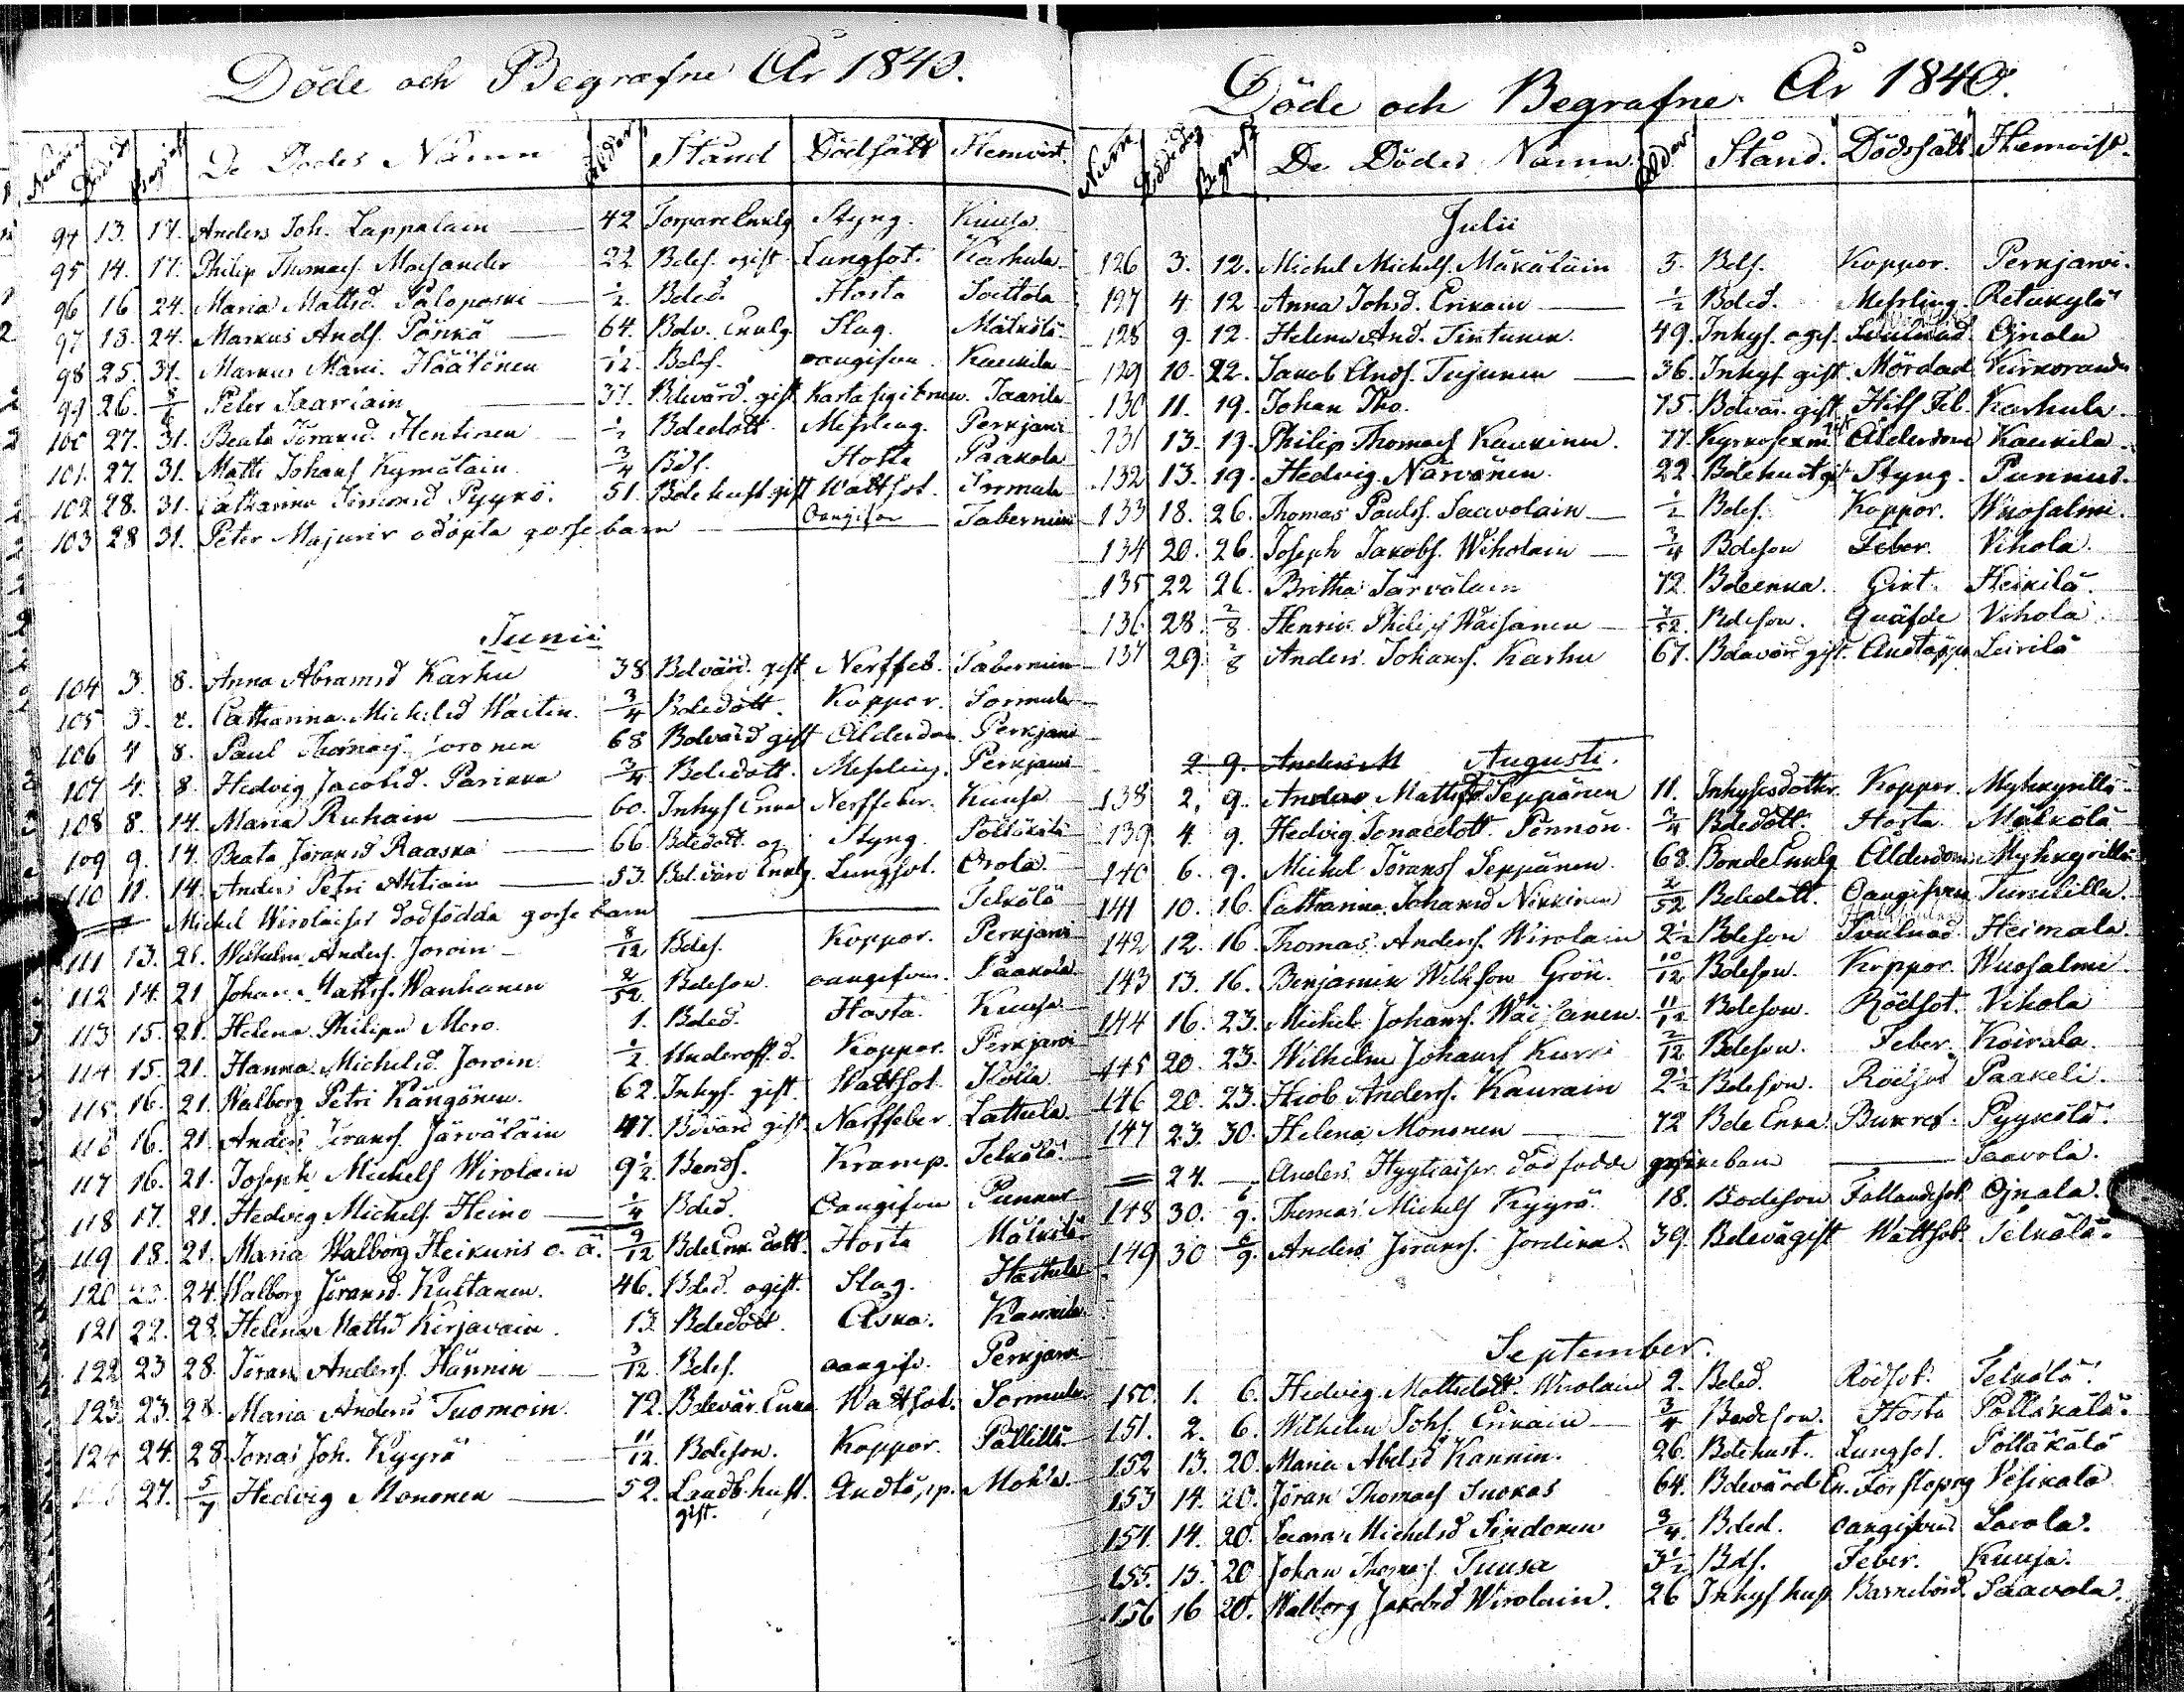 Döde och Begrafne År 1840.
De Dödes Namn Ålder Stånd Dödssätt Hemvist
94 13. 17. Anders Joh. Lappalain 42 Torpare Enklg Styng. Kuusa
95 14. 17. Philip Thomass. Mosander 22 Bdes. ogift Lungsot. Karhula
96 16 24. Maria Mattsd. Paloposki 1/2 Bded. Hosta Soittola
97 18. 24. Markus Ands. Pönkä 64. Bdv. Enklg Slag. Mälkölä
98 25. 31. Markus Mari. Häätönen 1/12 Bdes. oangifven Kaukila
99 26. Peter Saarlain 37. Bdevärd. gift Jaarila
100 27. 31. Beata Göransd. Hentinen 1/2 Bdedott Messling. Perkjarvi
101. 27. 31. Matts Johans Kymäläin 3/4 Bds. Hosta Paakola
102 28. 31. Catharina Simonsd Pyykö. 51. Bdehust. gift Wattsot. Sormula
103 28 31. Peter Majurir odöpta gossebarn Oangifven Tabernien
Junii
104 3. 8. Anna Abramsd Karhu 38 Bdvärd. gift Nerffeb. Tabernien
105 3. 8. Catharina Michelsd Waitin. 3/4 Bdedott. Koppor. Sormula
106 4 8. Paul Thomass. Joronen 68 Bdvärd gift Ålderdom Perkjarvi
107 4. 8. Hedvig Jacobsd. Parikka 3/4 Bdedott. Messling. Perkjarvi
108 8. 14. Maria Ruhain 60. Inhys Enka Nerffeber. Kuusa
109 9. 14. Beata Göransd Raaska 66 Bdedott. og Styng. Pölläkälä
110 11. 14. Anders Petri Ahtiain 53. Bdevärd Enklg. Lungsot. Orola
Michel Wirolaises dödfödda gossebarn Telkölä
111 13. 21. Wilhelm Anders. Joroin 8/12 Bdes. Koppor. Perkjarvi
112 14. 21 Johan Matss. Wanhanen 2/52 Bdeson. oangifven. Paakola
113 15. 21. Helena Philipsd Mero. 1. Bded. Hosta. Kuusa
114 15. 21. Hanna Michelsd. Joroin 1/2 Underoff. d. Koppor. Perkjarvi
115 16. 21. Walborg Petri Kängönen. 62. Inhys. gift. Wattsot. Kolla
116 16. 21. Anders Görans. Järväläin 47. Bdvärd gift. Narffeber. Lattula
117 16. 21. Joseph Michels Wirolain 9 1/2. Bonds. Kramp. Telkölä
118 17. 21. Hedvig Michels. Heino 1/4 Bded. Oangifven Punnus
119 18. 21. Maria Walborg Heikuris o. ä. 9/12 BdeEnk. dott. Hosta Mälkölä
120 24. Walborg Göransd. Kultanen. 46. Bded. ogift. Slag. Hattula
121 22. 28. Helena Mattsd Kirjavain. 13. Bdedott. Åska. Kaukila
122 23 28. Göran Anders. Hännin 3/12 Bdes. oangifv. Perkjarvi
123 23. 28. Maria Andersd Tuomoin. 72. Bdevär. Enka Wattsot. Sormula
124 24. 28. Jonas Joh. Kyyrö 11/12. Bdeson. Koppor. Pällilä
27. 5/7 Hedvig Mononen 52. Landb. hust. gift. Andtäpp. Mohla.
Döde och Begrafne År 1840.
Num Dödsdag Begrafn De Dödes Namn Ålder Stånd. Dödssätt. Hemvist.
Julii
126 3. 12. Michel Michels. Mäkäläin 5. Bds. Koppor. Perkjarvi.
127 4 12 Anna Johsd. Erikain 1/2 Bded. Messling. Retukylä
128 9. 12. Helena And. Tintunen. 49. Inhys. ogift. Ojnala
129 10. 22. Jakob Ands. Tujunen 36. Inhys gift. Mördad Kirkoranda
130 11. 19. Johan Tho. 75. Bdvär. gift Hits Feb. Karhula
131 13. 19. Philip Thomass Kaukinen. 77. Ålderdom Kaukila.
132 13. 19. Hedvig Närvänen. 22. Bdehust gift Styng. Punnus.
133 18. 26. Thomas Pauls. Saavolain 1/2 Bdes. Koppor. Wuosalmi.
134 20. 26. Joseph Jakobs. Wiholain 3/4 Bdeson Feber. Vihola.
135 22 26. Britha Järväläin 72. Bdeenka. Gikt. Heikilä.
136 28. 2/8 Henrik Philips Waisanen 2/52. Bdeson. Quäfde Vihola
137 29. 2/8 Anders Johans. Karhu 67. Bdevärd gift. Andtäppa Leirilä
2. 9. Anders M Augusti.
138 2. 9. Anders Mattsd Seppänen 11. Inhysesdotter. Koppor. Myhkyrillä
139 4 9. Hedvig Jonaedott. Pennön. 3/4 Bdedott. Hosta Mälkölä
140 6. 9. Michel Görans Seppänen. 68. Bonde Enklg Ålderdom. Myhkyrillä
141 10. 16. Catharina Johansd Nikkinen 2/52 Bdedott. Oangifven Turulila.
142 12. 16. Thomas Anders. Wirolain 2 1/2 Bdeson Heimala.
143 13. 16. Benjamin Wilhson Grön. 10/12 Bdeson. Koppor. Wuosalmi.
144 16. 23. Michel Johans. Wäisänen. 11/12 Bdeson. Rödsot. Vihola
145 20 23. Wilhelm Johans Kurri 2/12 Bdeson. Feber. Koirala.
146 20. 23. Hiob Anders. Kaurain 2 1/2 Bdeson. Rödsot Paakeli.
147 23. 30. Helena Mononen 72 Bde Enka. Bukref. Pyykölä.
24. Anders Hyytiaises dödfödde gossebarn Saavola.
148 30. 6/9. Thomas Michels Kyyrö 18. Bodeson Fallandesot. Ojnala.
149 30 6/9. Anders Görans. Jordika. 39. Bdevägift Wattsot. Telkölä.
September.
150. 1. 6. Hedvig Mattsdott. Wirolain 2. Bded. Rödsot. Telkölä.
151. 2. 6. Wilhelm Johs. Erikain 3/4 Bodeson. Hosta Pölläkälä.
152 13. 20. Maria Abelsd Kannin. 26. Bdehust. Lungsot. Pölläkälä
153 14. 20. Göran Thomass Suokas 64. Bdevärd En. Förstopng Vesikala
154. 14. 20. Saara Michelsd Sindonen 3/4. Bded. oangifven Lavola.
155. 15. 20 Johan Thomass. Tuusa 3 1/2 Bds. Feber. Kuusa.
156 16 20. Walborg Jakobsd Wirolain. 26 Inhys hus Barnsbörd. Saavola.